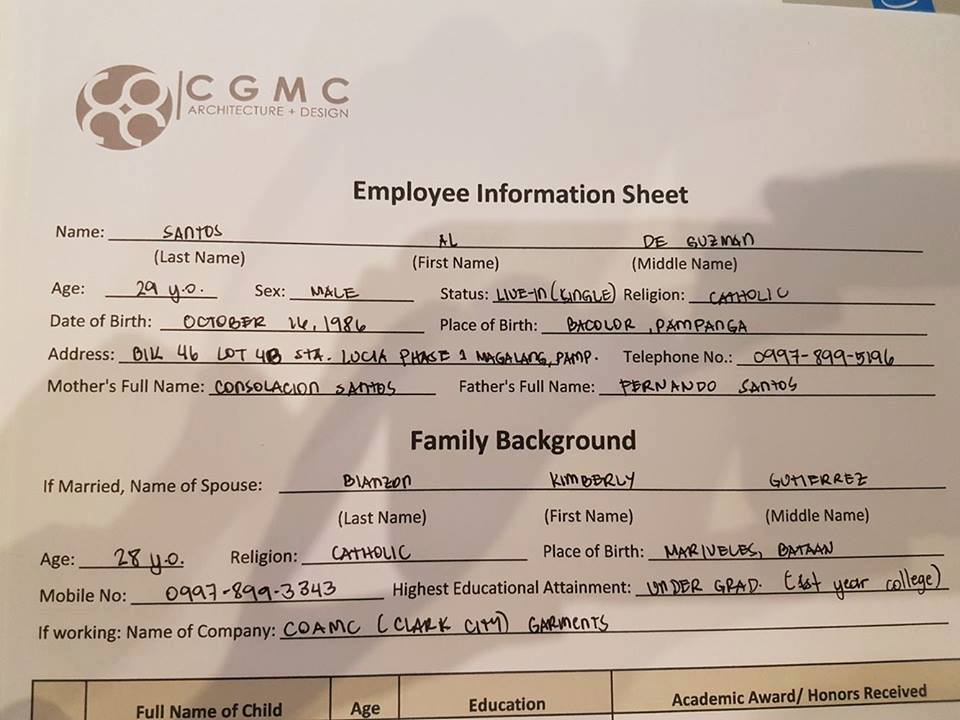 CGMC
ARCHITECTURE + DESIGN
Employee Information Sheet
Name: SANTOS AL DE GUZMAN
(Last Name) (First Name) (Middle Name)
Age: 29 y.o. Sex: MALE Status: LIVE-IN (KINGLE) Religion: CATHOLIC
Date of Birth: OCTOBER 26, 1986 Place of Birth: BACOLOR, PAMPANGA
Address: BLK 46 LOT 4B STA. LUCIA PHASE 1 MAGALANG, PAMP. Telephone No.: 0997-899-5196
Mother's Full Name: CONSOLACION SANTOS Father's Full Name: FERNANDO SANTOS
Family Background
If Married, Name of Spouse: BIANZON KIMBERLY GUTIERREZ
(Last Name) (First Name) (Middle Name)
Age: 28 y.o. Religion: CATHOLIC Place of Birth: MARIVELES, BATAAN
Mobile No: 0997-899-3343 Highest Educational Attainment: UNDER GRAD. (1st year college)
If working: Name of Company: COAMC (CLARK CITY) GARMENTS
Full Name of Child Age Education Academic Award/ Honors Received